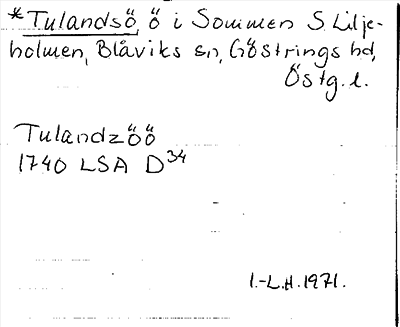 *Tulandsö, ö i Sommen S Lilje-
holmen, Blåviks sn, Göstrings hd,
Östg.l.
Tulandzöö
1740 LSA D34
I.-L.H.1971.